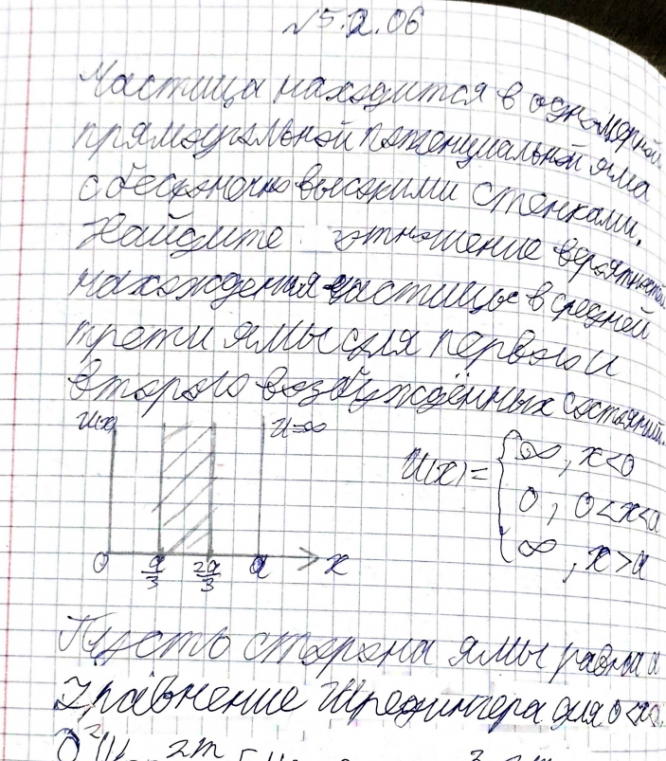 №5.2.06
Частица находится в одномерной
прямоугольной потенциальной яма
с бесконечно высокими стенками.
Найдите отношение вероятности
нахождения частицы в средней
трети ямы для первого и
второго возбуждённых состояний.
U(x) U=∞
U(x) = { ∞, x<0
0, 0<x<a
∞, x>a
0 a/3 2a/3 a x
Пусть сторона ямы равна a
Уравнение Шредингера для 0<x<a
2m